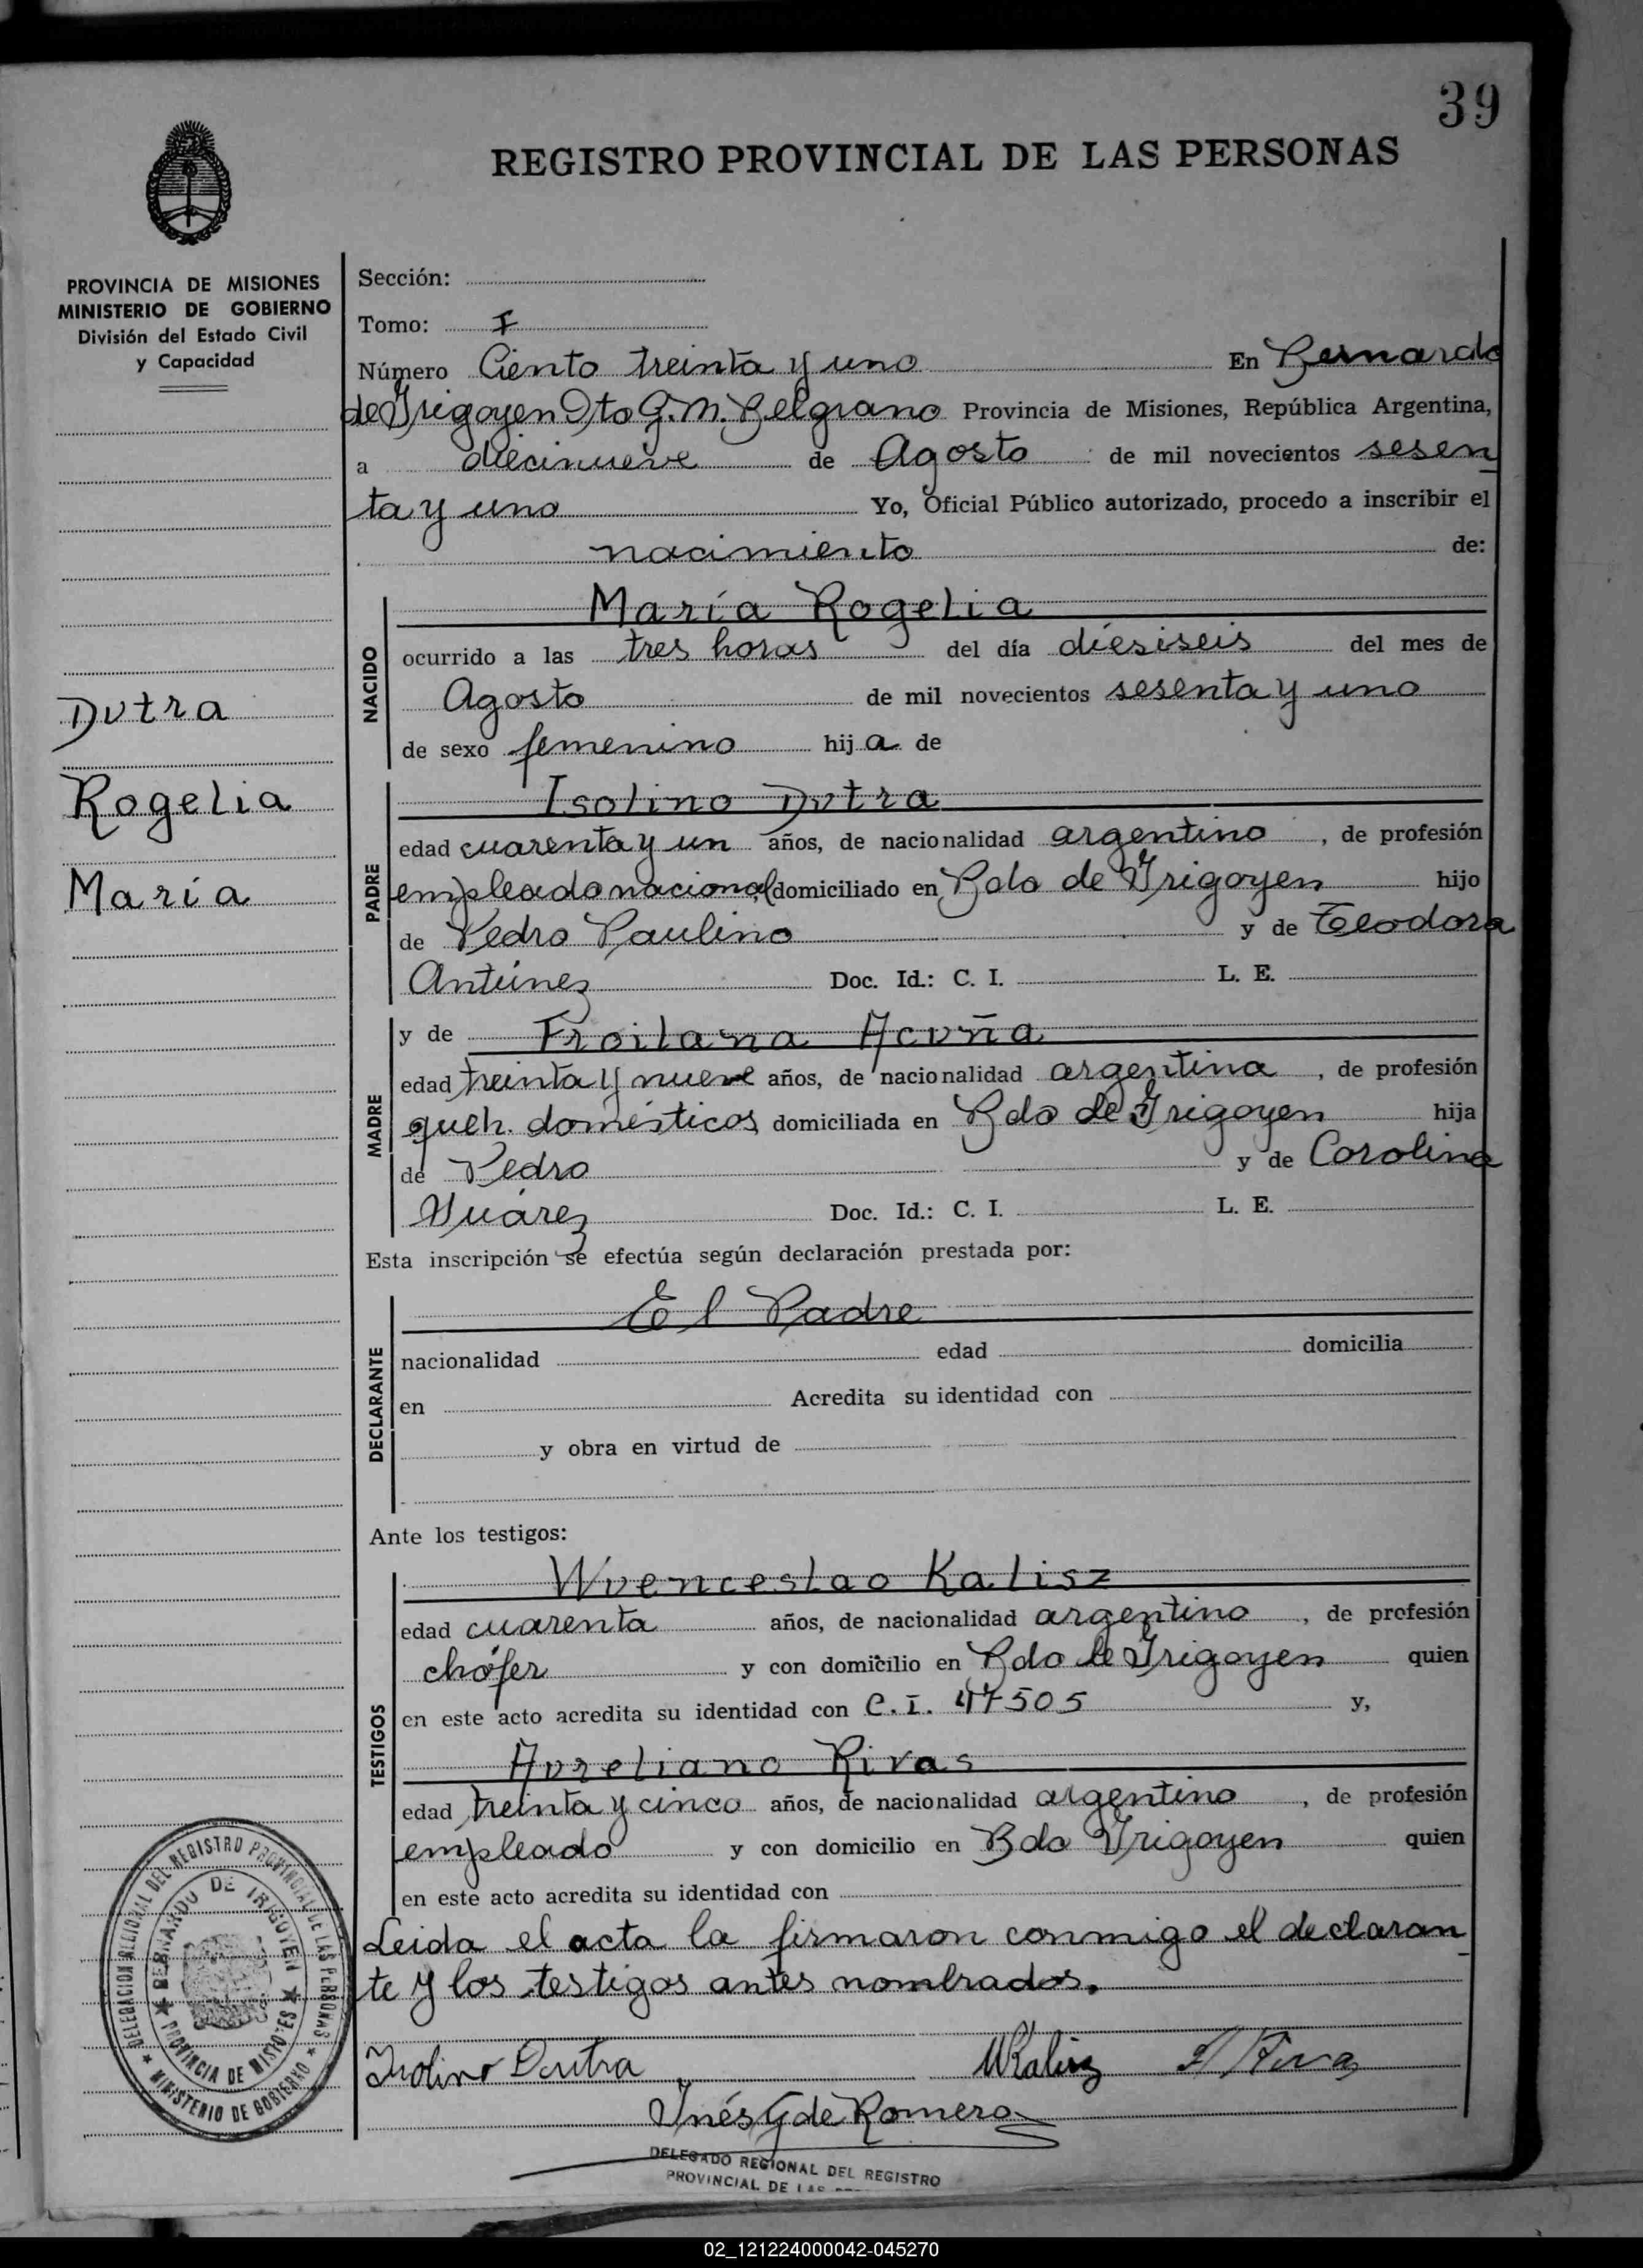 39
REGISTRO PROVINCIAL DE LAS PERSONAS
PROVINCIA DE MISIONES
MINISTERIO DE GOBIERNO
División del Estado Civil
y Capacidad
Dutra
Rogelia
María
Sección:
Tomo: I
Número Ciento treinta y uno En Bernardo
de Yrigoyen Dto G.M. Belgrano Provincia de Misiones, República Argentina,
a diecinueve de Agosto de mil novecientos sesen
ta y uno Yo, Oficial Público autorizado, procedo a inscribir el
nacimiento de:
NACIDO
María Rogelia
ocurrido a las tres horas del día dieśiseis del mes de
Agosto de mil novecientos sesenta y uno
de sexo femenino hija de
PADRE
Isolino Dutra
edad cuarenta y un años, de nacionalidad argentino, de profesión
empleado nacional, domiciliado en Bdo de Yrigoyen hijo
de Pedro Paulino y de Teodora
Antúnez Doc. Id.: C. I. L. E.
MADRE
y de Froilana Acuña
edad treinta y nueve años, de nacionalidad argentina, de profesión
queh. domésticos domiciliada en Bdo de Yrigoyen hija
de Pedro y de Carolina
Yuárez Doc. Id.: C. I. L. E.
Esta inscripción se efectúa según declaración prestada por:
DECLARANTE
El Padre
nacionalidad edad domicilia
en Acredita su identidad con
y obra en virtud de
Ante los testigos:
TESTIGOS
Wuenceslao Kalisz
edad cuarenta años, de nacionalidad argentino, de profesión
chófer y con domicilio en Bdo de Yrigoyen quien
en este acto acredita su identidad con C.I. 47505 y,
Aureliano Rivas
edad treinta y cinco años, de nacionalidad argentino, de profesión
empleado y con domicilio en Bdo Yrigoyen quien
en este acto acredita su identidad con
Leida el acta la firmaron conmigo el declaran
te y los testigos antes nombrados.
Isolino Dutra WKalisz A Rivas
Inés G de Romero
DELEGADO REGIONAL DEL REGISTRO
PROVINCIAL DE LAS
DELEGACION REGIONAL DEL REGISTRO PROVINCIAL DE LAS PERSONAS
MINISTERIO DE GOBIERNO
BERNARDO DE IRIGOYEN
PROVINCIA DE MISIONES
02_121224000042-045270